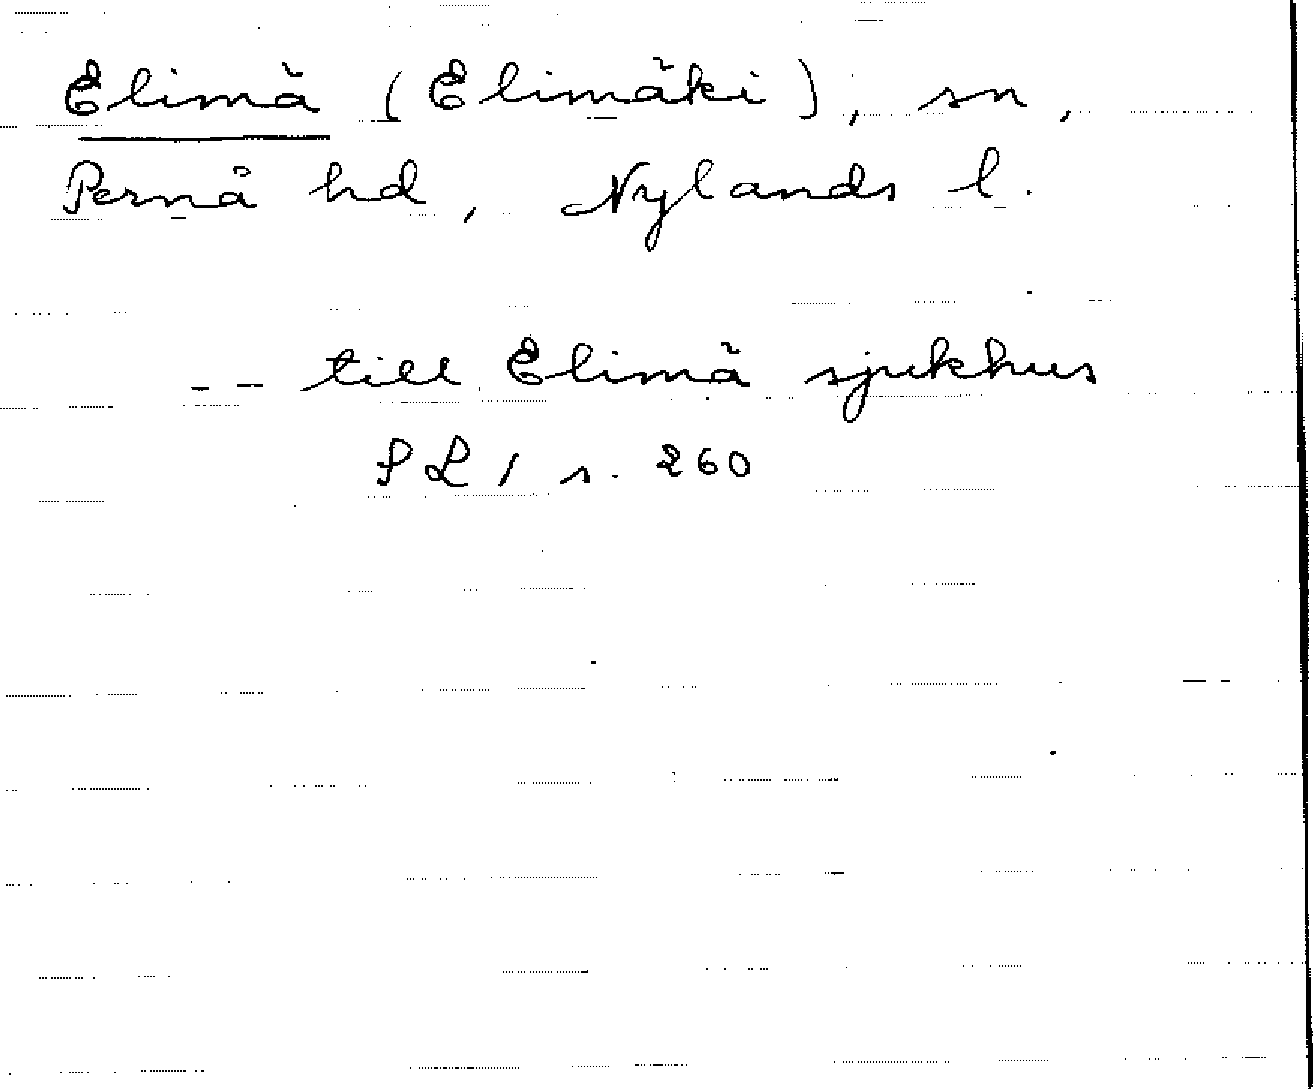 Elimä (Elimäki), sn,
Pernå hd, Nylands l.
-- till Elimä sjukhus
PL, s. 260